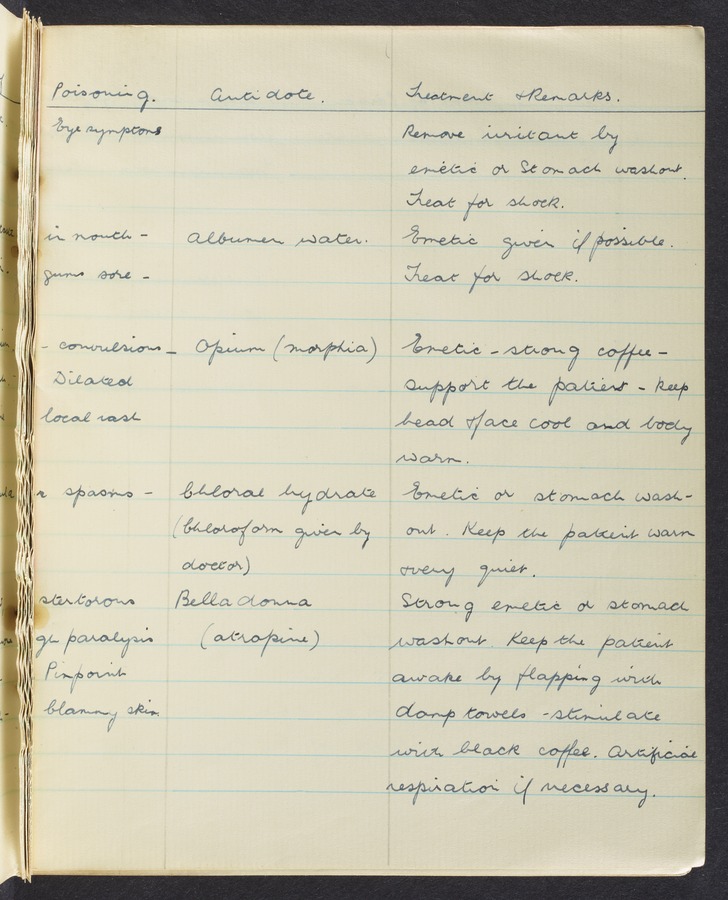 Poisoning. Antidote. Treatment & Remarks.
Eye symptoms Remove irritant by
emetic or Stomach washout.
Treat for shock.
in mouth - albumen water. Emetic given if possible.
gums sore - Treat for shock.
- convulsions - Opium (morphia) Emetic - strong coffee -
Dilated support the patient - keep
local rash head & face cool and body
warm.
spasms - Chloral hydrate Emetic or stomach wash-
(Chloroform given by out. Keep the patient warm
doctor) & very quiet.
stertorous Belladonna Strong emetic or stomach
gh paralysis (atropine) washout. Keep the patient
Pinpoint awake by flapping with
Clammy skin. damp towels - stimulate
with black coffee. Artificial
respiration if necessary.